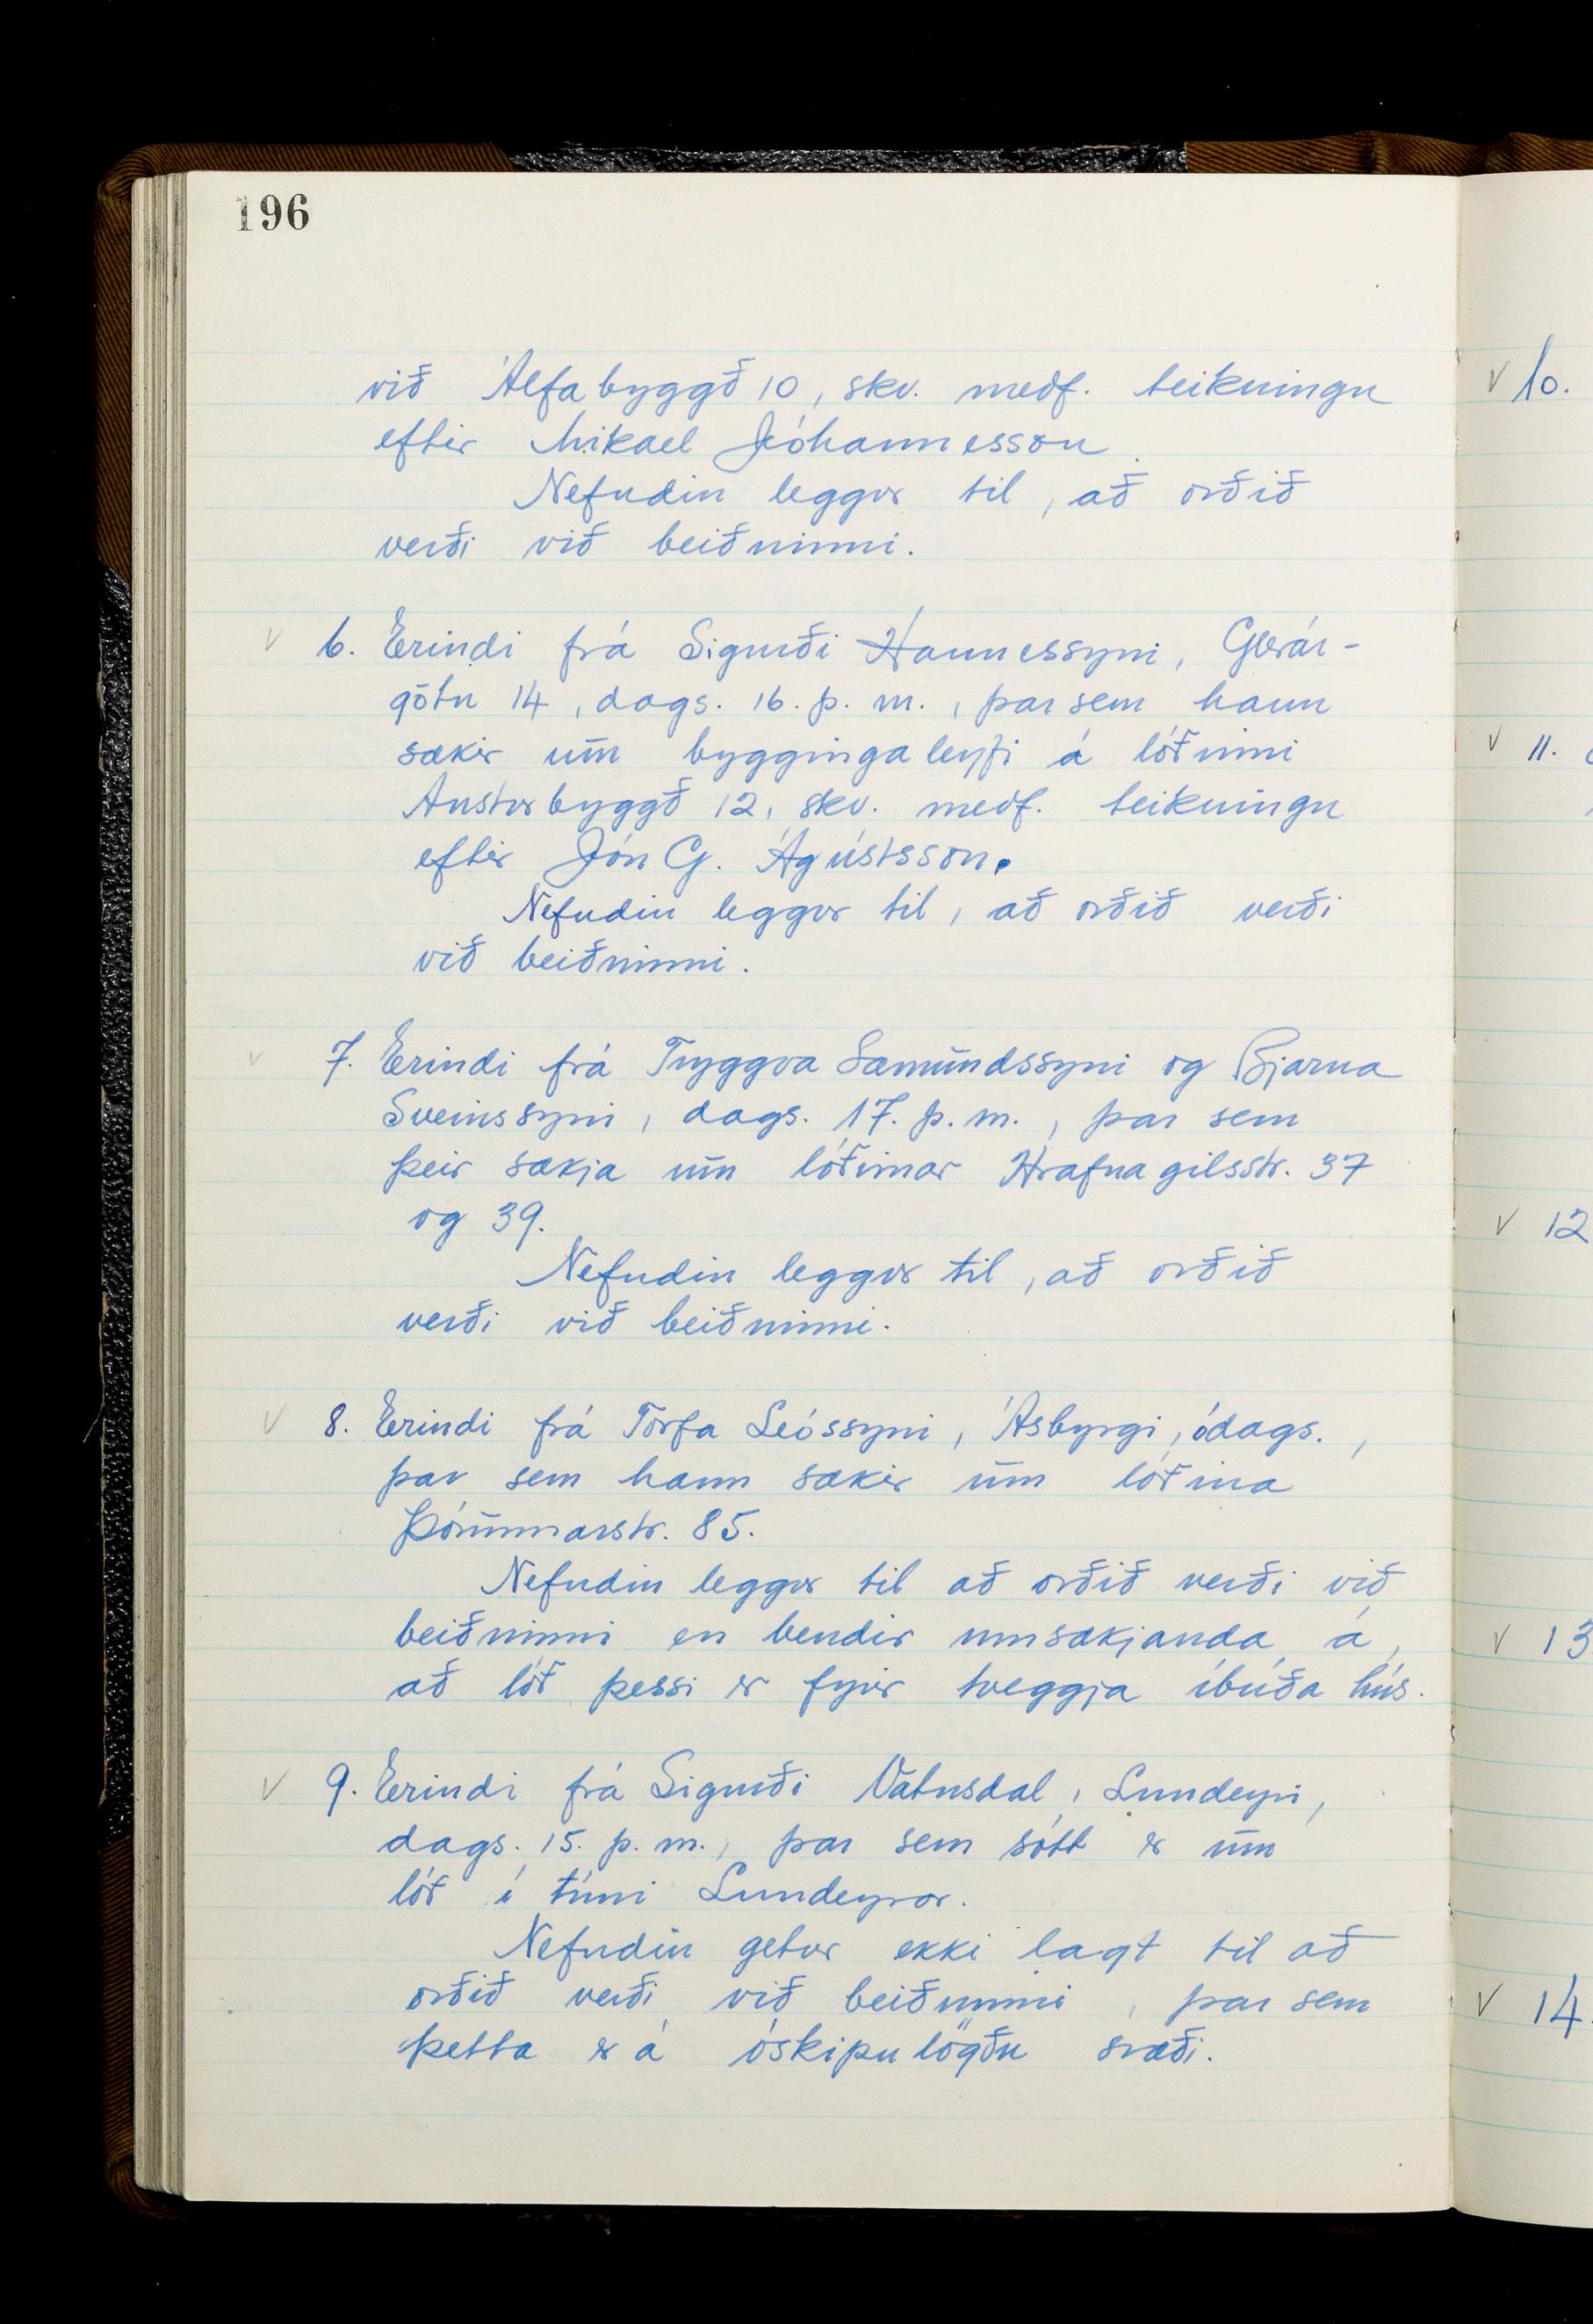 196
við Álfabyggð 10, skv. meðf. teikningu
eftir Mikael Jóhannesson.
Nefndin leggur til, að orðið
verði við beiðninni.
6. Erindi frá Sigurði Hannessyni, Glerár-
götu 14, dags. 16. þ. m., þar sem hann
sækir um byggingaleyfi á lóðinni
Austurbyggð 12, skv. meðf. teikningu
eftir Jón G. Ágústsson.
Nefndin leggur til, að orðið verði
við beiðninni.
7. Erindi frá Tryggva Sæmundssyni og Bjarna
Sveinssyni, dags. 17. þ. m., þar sem
þeir sækja um lóðirnar Hrafnagilsstr. 37
og 39.
Nefndin leggur til, að orðið
verði við beiðninni.
8. Erindi frá Torfa Leóssyni, Ásbyrgi, ódags.,
þar sem hann sækir um lóðina
Þórunnarstr. 85.
Nefndin leggur til að orðið verði við
beiðninni en bendir umsækjanda á,
að lóð þessi er fyrir tveggja íbúða hús.
9. Erindi frá Sigurði Vatnsdal, Lundeyri,
dags. 15. þ. m., þar sem sótt er um
lóð í túni Lundeyrar.
Nefndin getur ekki lagt til að
orðið verði við beiðninni, þar sem
þetta er á óskipulögðu svæði.
10.
11.
12
13
14.